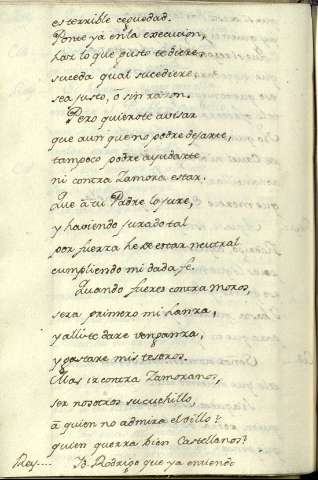 es terrible cequedad.
Ponte ya en la execucion,
har lo que gusto te diere,
suceda qual sucediere
sea justo, ò sin razon.
Pero quierote avisar
que aun que no podre dejarte,
tampoco podre ayudarte
ni contra Zamora estar.
Que à tu Padre lo jure,
y haviendo jurado tal
por fuerza he de estar neutral
cumpliendo mi dada fe.
Quando fueres contra moros,
sera primero mi lanza,
y alli te dare venganza,
y gastare mis tesoros.
Mas ir contra Zamoranos,
ser nosotros su cuchillo,
à quien no admira el oillo?
quien querra bien Castellanos?
Rey.... D. Rodrigo que ya entiendo